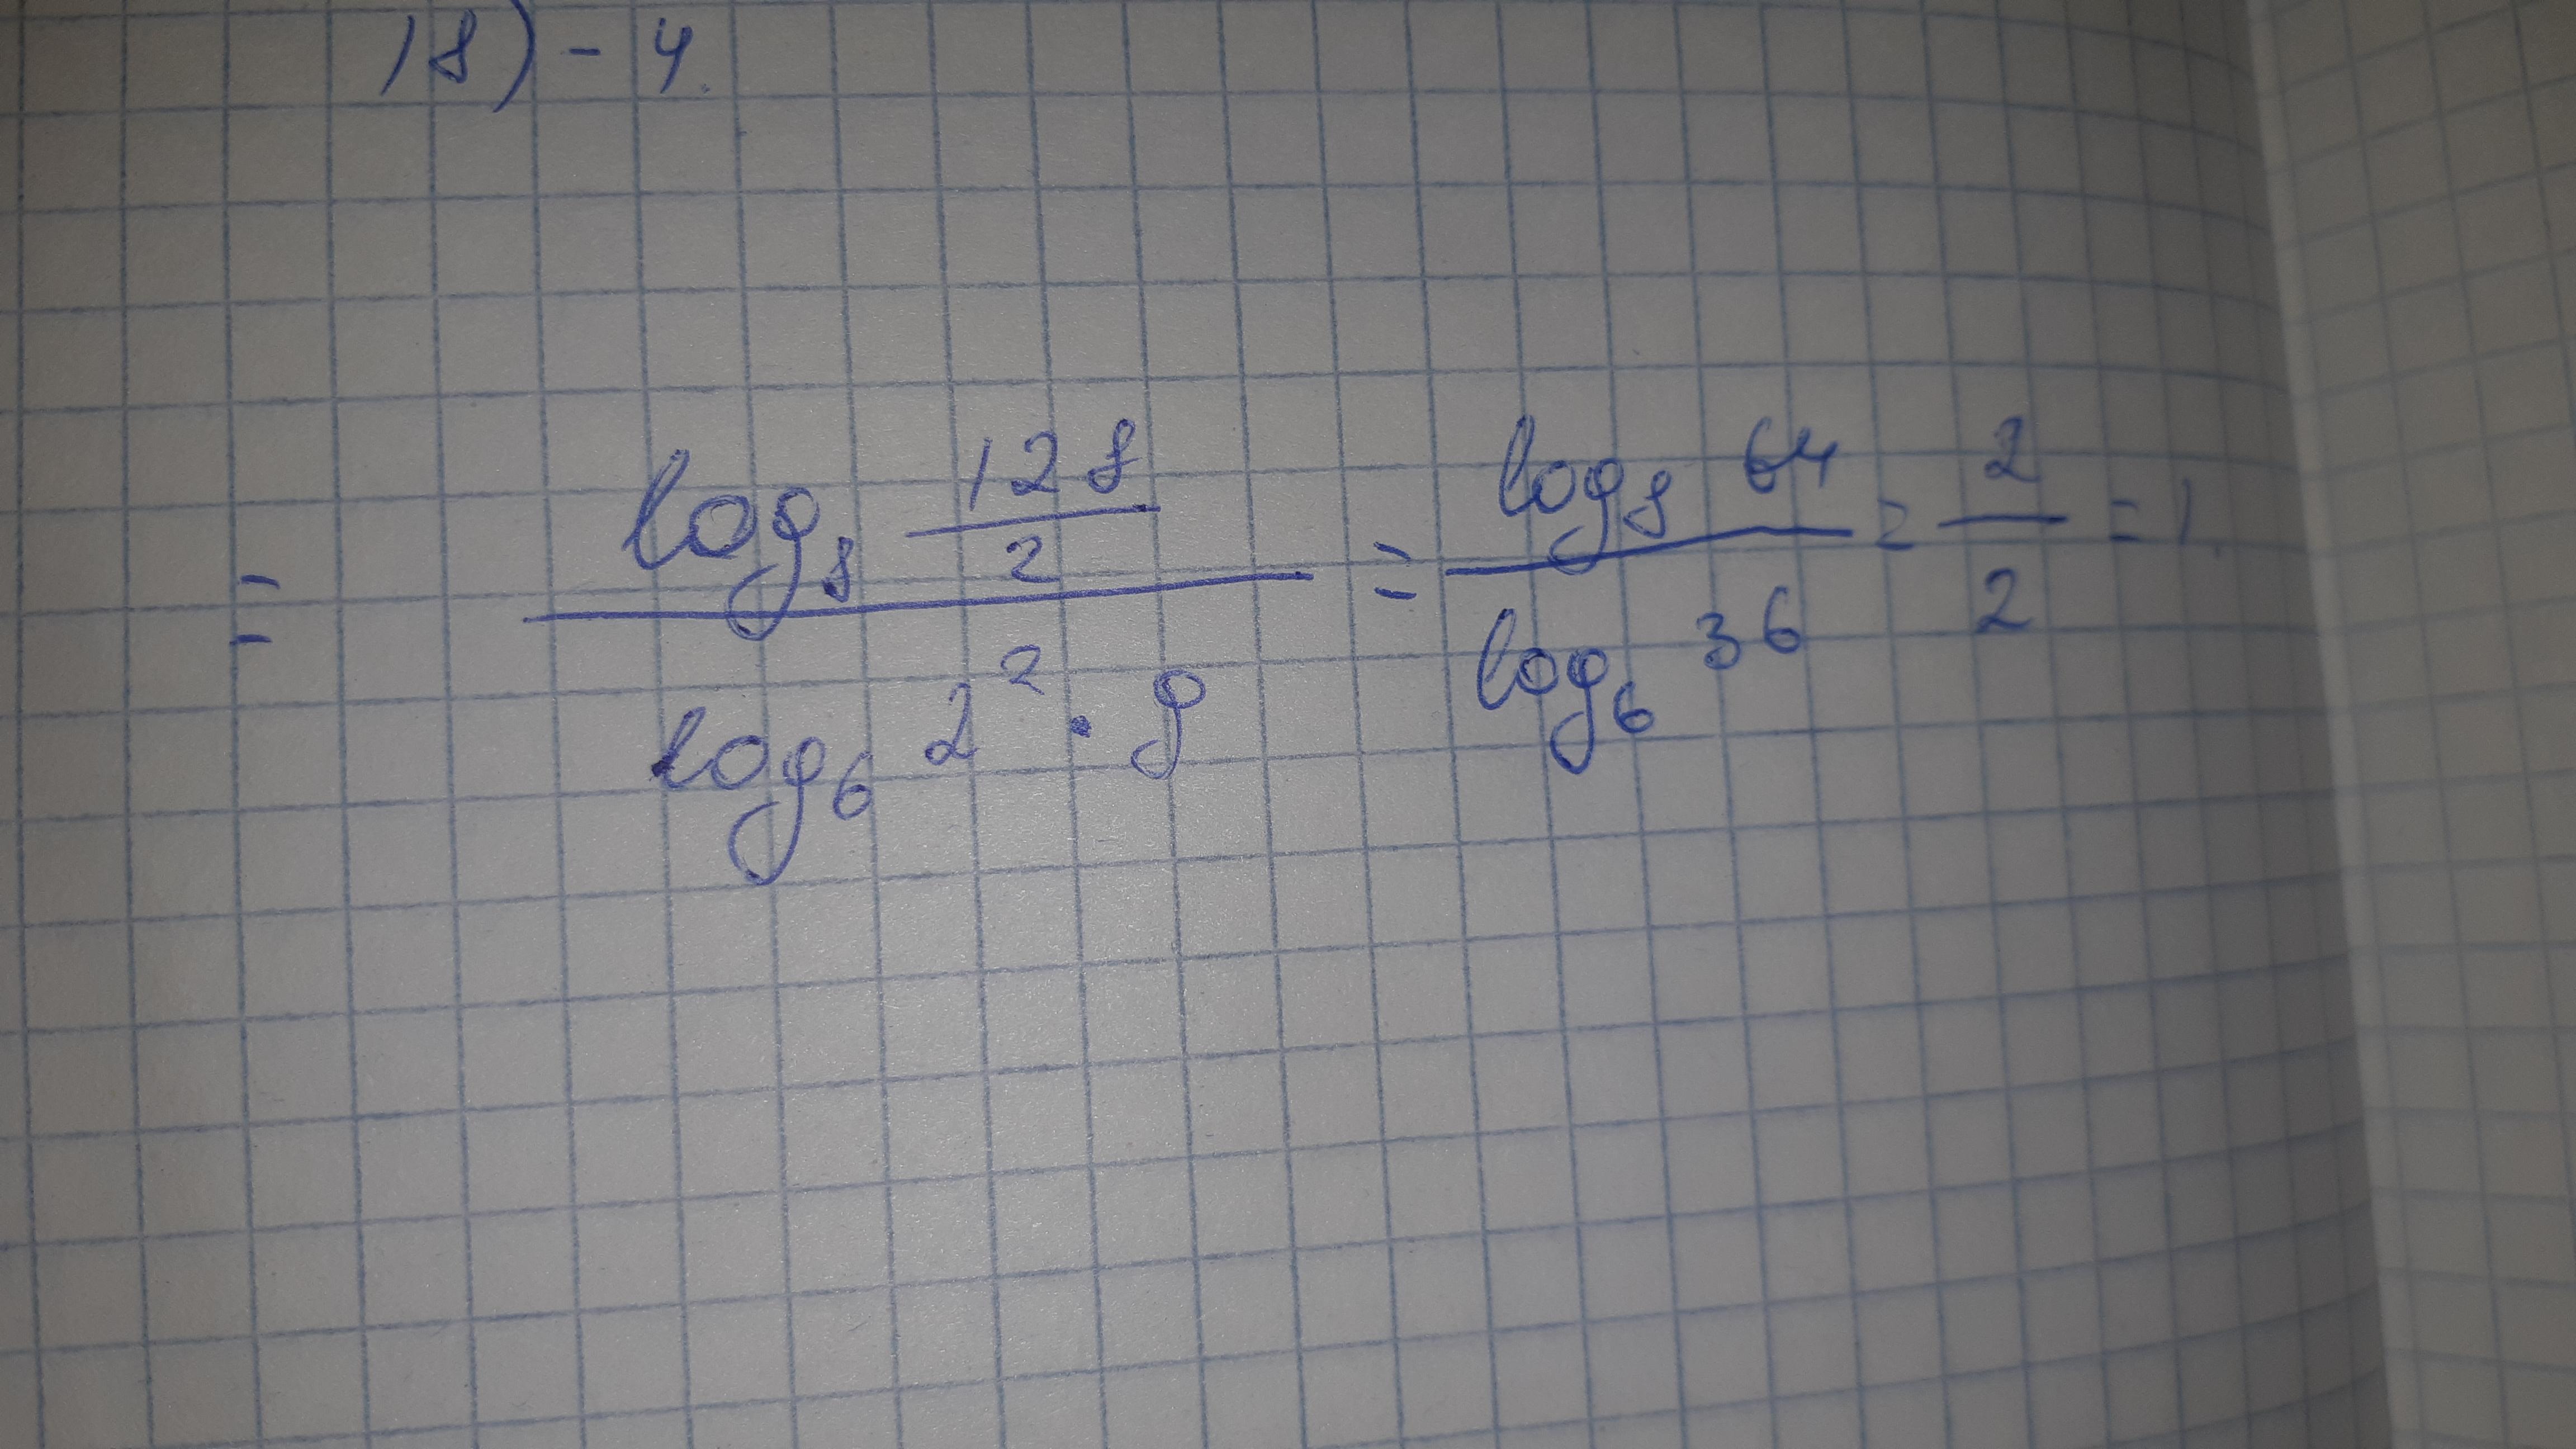 18) - 4.
= log₈ 128/2 / log₆ 2² · 9 = log₈ 64 / log₆ 36 = 2/2 = 1.